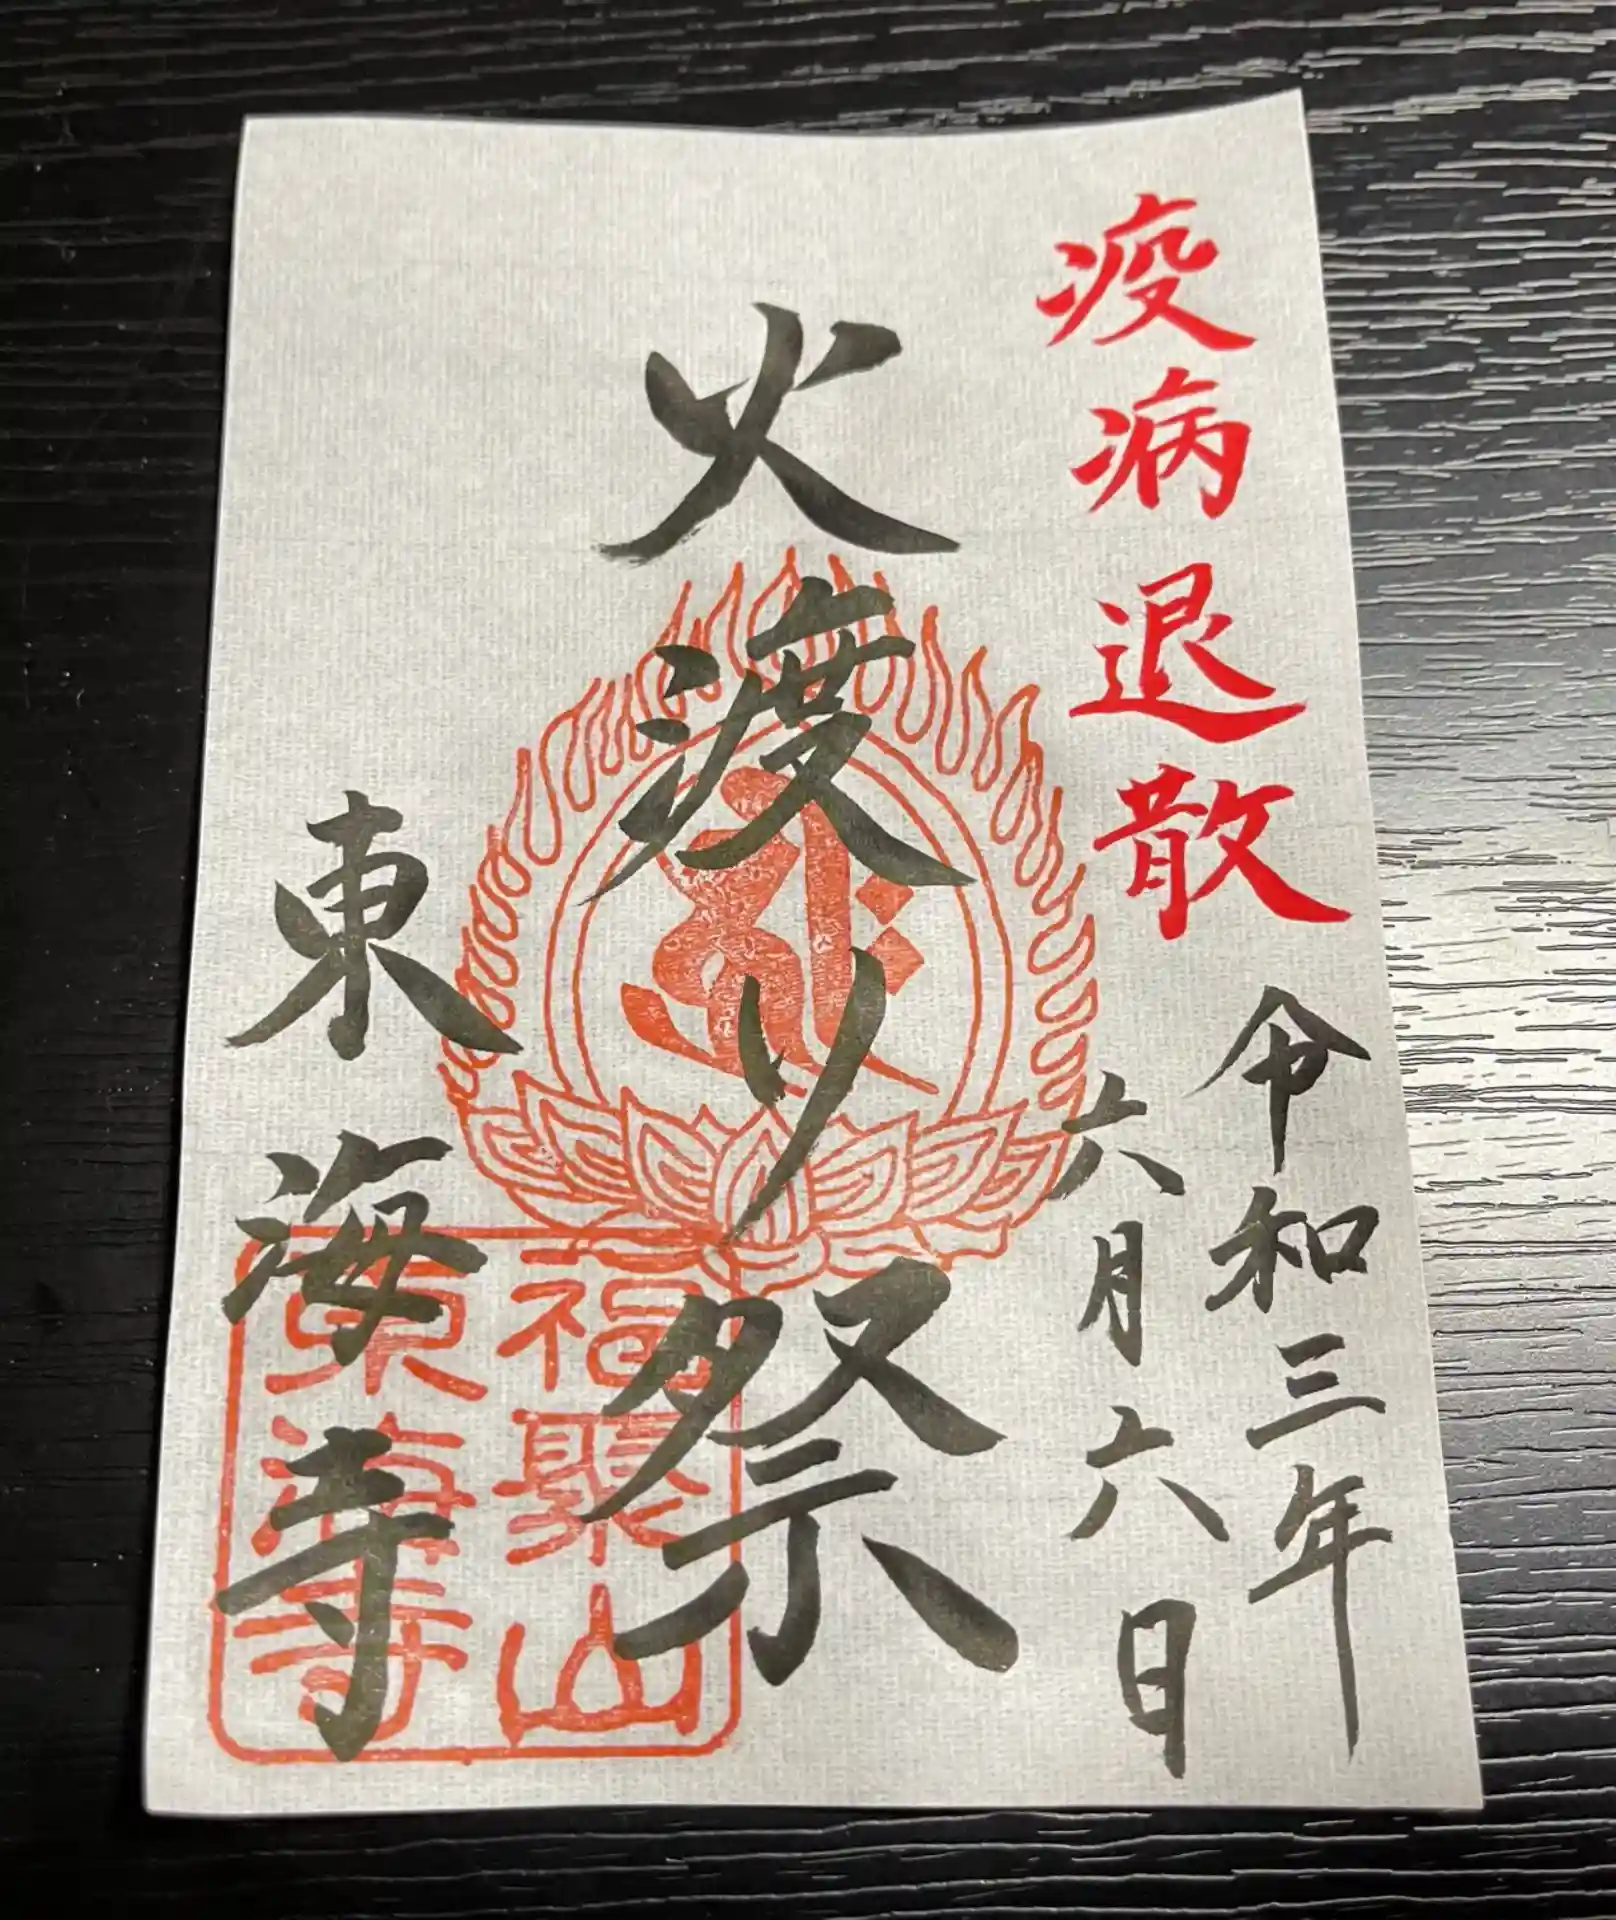 疫病退散
令和三年
六月六日
火渡り祭
東海寺
福聚山
東海寺